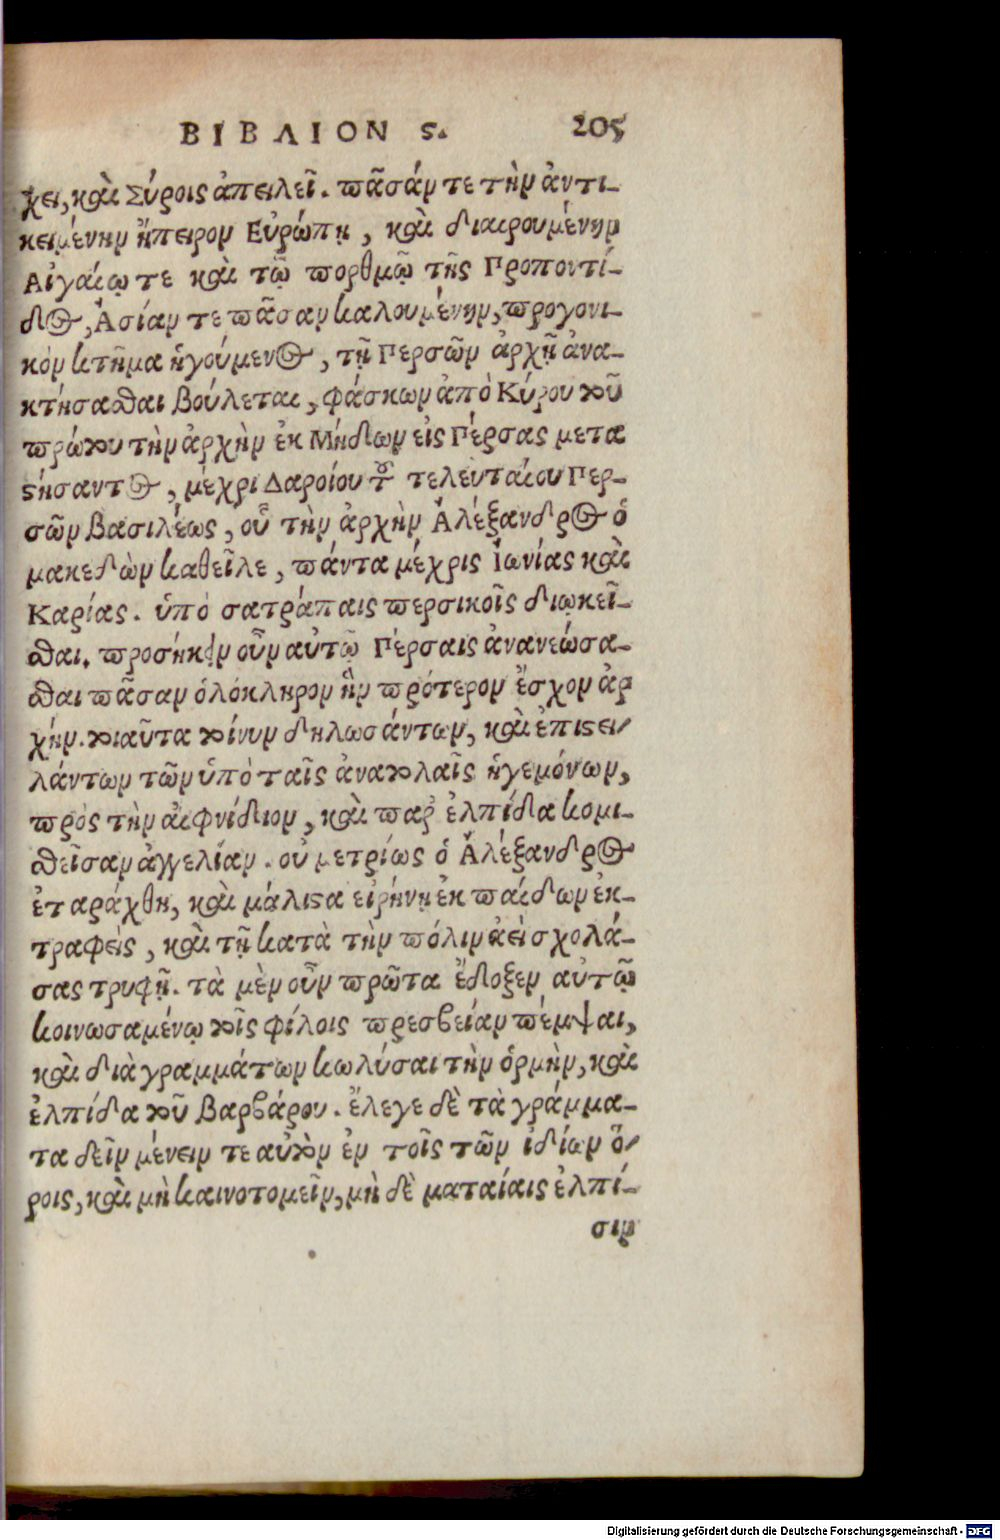 ΒΙΒΛΙΟΝ ϛ. 205
χει, καὶ Σύροις ἀπειλεῖ. πᾶσάν τε τὴν ἀντι-
κειμένην ἤπειρον Εὐρώπῃ, καὶ διαιρουμένην
Αἰγαίῳ τε καὶ τῷ πορθμῷ τῆς Προποντί-
δος, Ἀσίαν τε πᾶσαν καλουμένην, προγονι-
κὸν κτῆμα ἡγούμενος, τῇ Περσῶν ἀρχῇ ἀνα-
κτήσασθαι βούλεται, φάσκων ἀπὸ Κύρου τοῦ
πρώτου τὴν ἀρχὴν ἐκ Μήδων εἰς Πέρσας μετα
στήσαντος, μέχρι Δαροίου τοῦ τελευταίου Περ-
σῶν βασιλέως, οὗ τὴν ἀρχὴν Ἀλέξανδρος ὁ
μακεδὼν καθεῖλε, πάντα μέχρις Ἰωνίας καὶ
Καρίας. ὑπὸ σατράπαις περσικοῖς διῳκεῖ-
σθαι. προσήκειν οὖν αὐτῷ Πέρσαις ἀνανεώσα-
σθαι πᾶσαν ὁλόκληρον ἣν πρότερον ἔσχον ἀρ
χήν. τοιαῦτα τοίνυν δηλωσάντων, καὶ ἐπιστει-
λάντων τῶν ὑπὸ ταῖς ἀνατολαῖς ἡγεμόνων,
πρὸς τὴν αἰφνίδιον, καὶ παρ' ἐλπίδα κομι-
σθεῖσαν ἀγγελίαν. οὐ μετρίως ὁ Ἀλέξανδρος
ἐταράχθη, καὶ μάλιστα εἰρήνῃ ἐκ παίδων ἐκ-
τραφεὶς, καὶ τῇ κατὰ τὴν πόλιν ἀεὶ σχολά-
σας τρυφῇ. τὰ μὲν οὖν πρῶτα ἔδοξεν αὐτῷ
κοινωσαμένῳ τοῖς φίλοις πρεσβείαν πέμψαι,
καὶ διὰ γραμμάτων κωλύσαι τὴν ὁρμὴν, καὶ
ἐλπίδα τοῦ βαρβάρου. ἔλεγε δὲ τὰ γράμμα-
τα δεῖν μένειν τε αὐτὸν ἐν τοῖς τῶν ἰδίων ὅ-
ροις, καὶ μὴ καινοτομεῖν, μὴ δὲ ματαίαις ἐλπί-
σιν
Digitalisierung gefördert durch die Deutsche Forschungsgemeinschaft - DFG